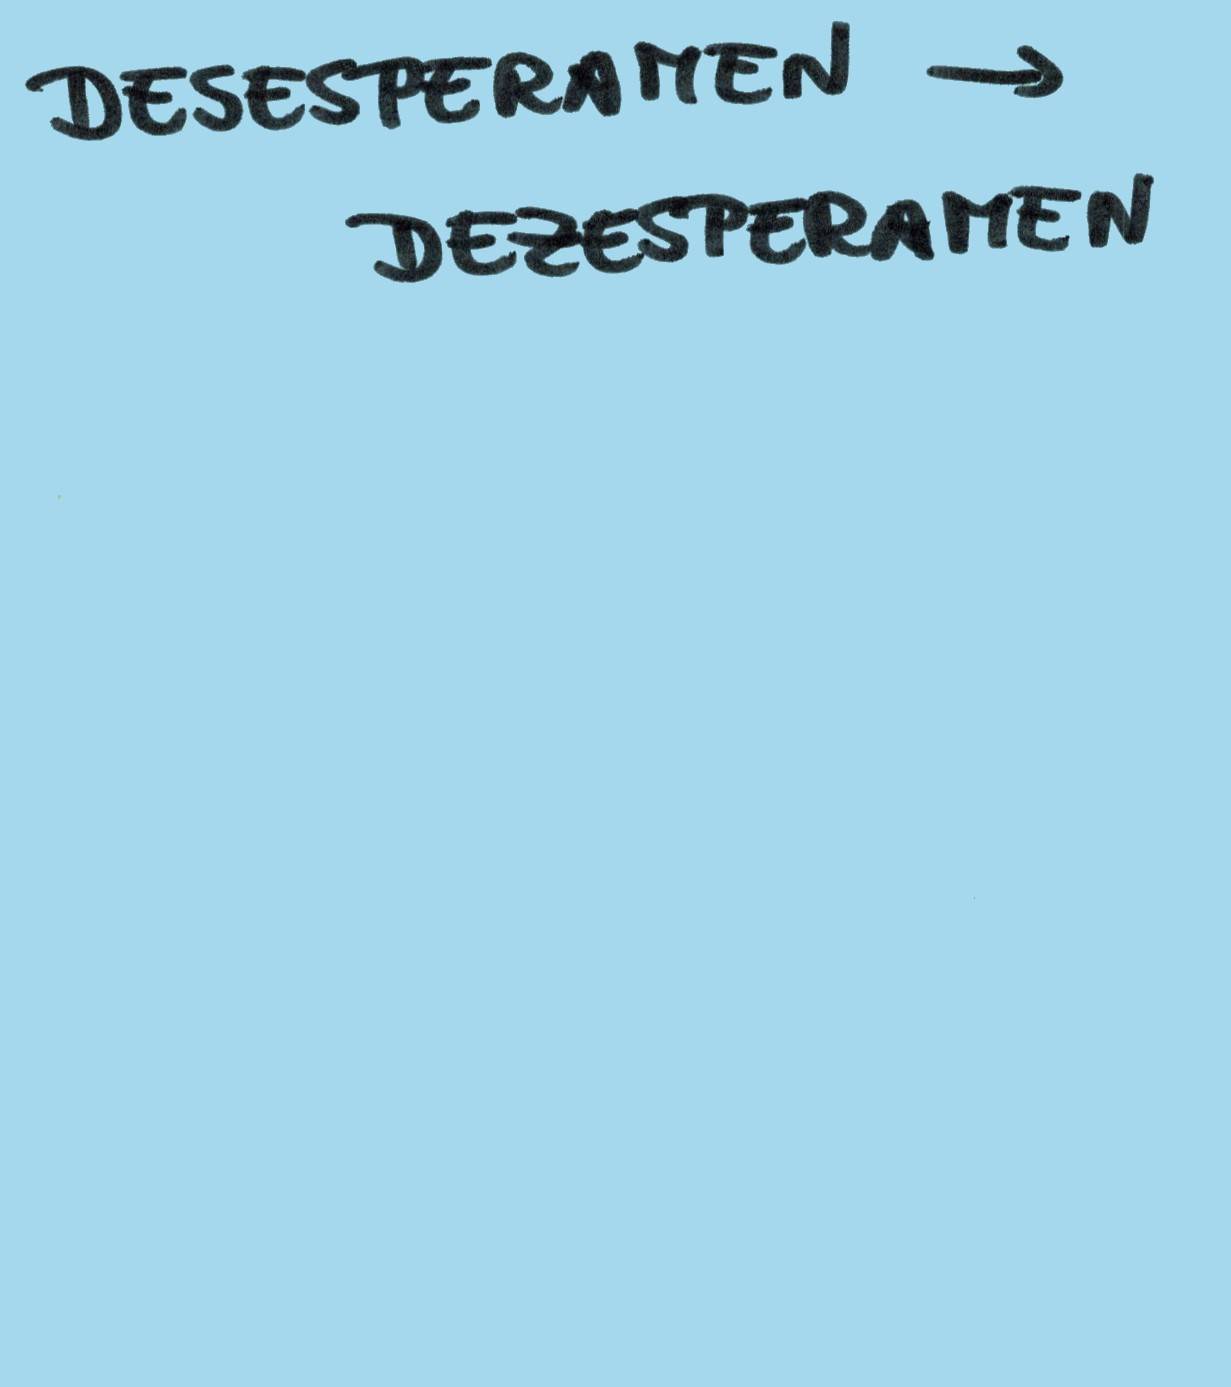 DESESPERAMEN →
DEZESPERAMEN